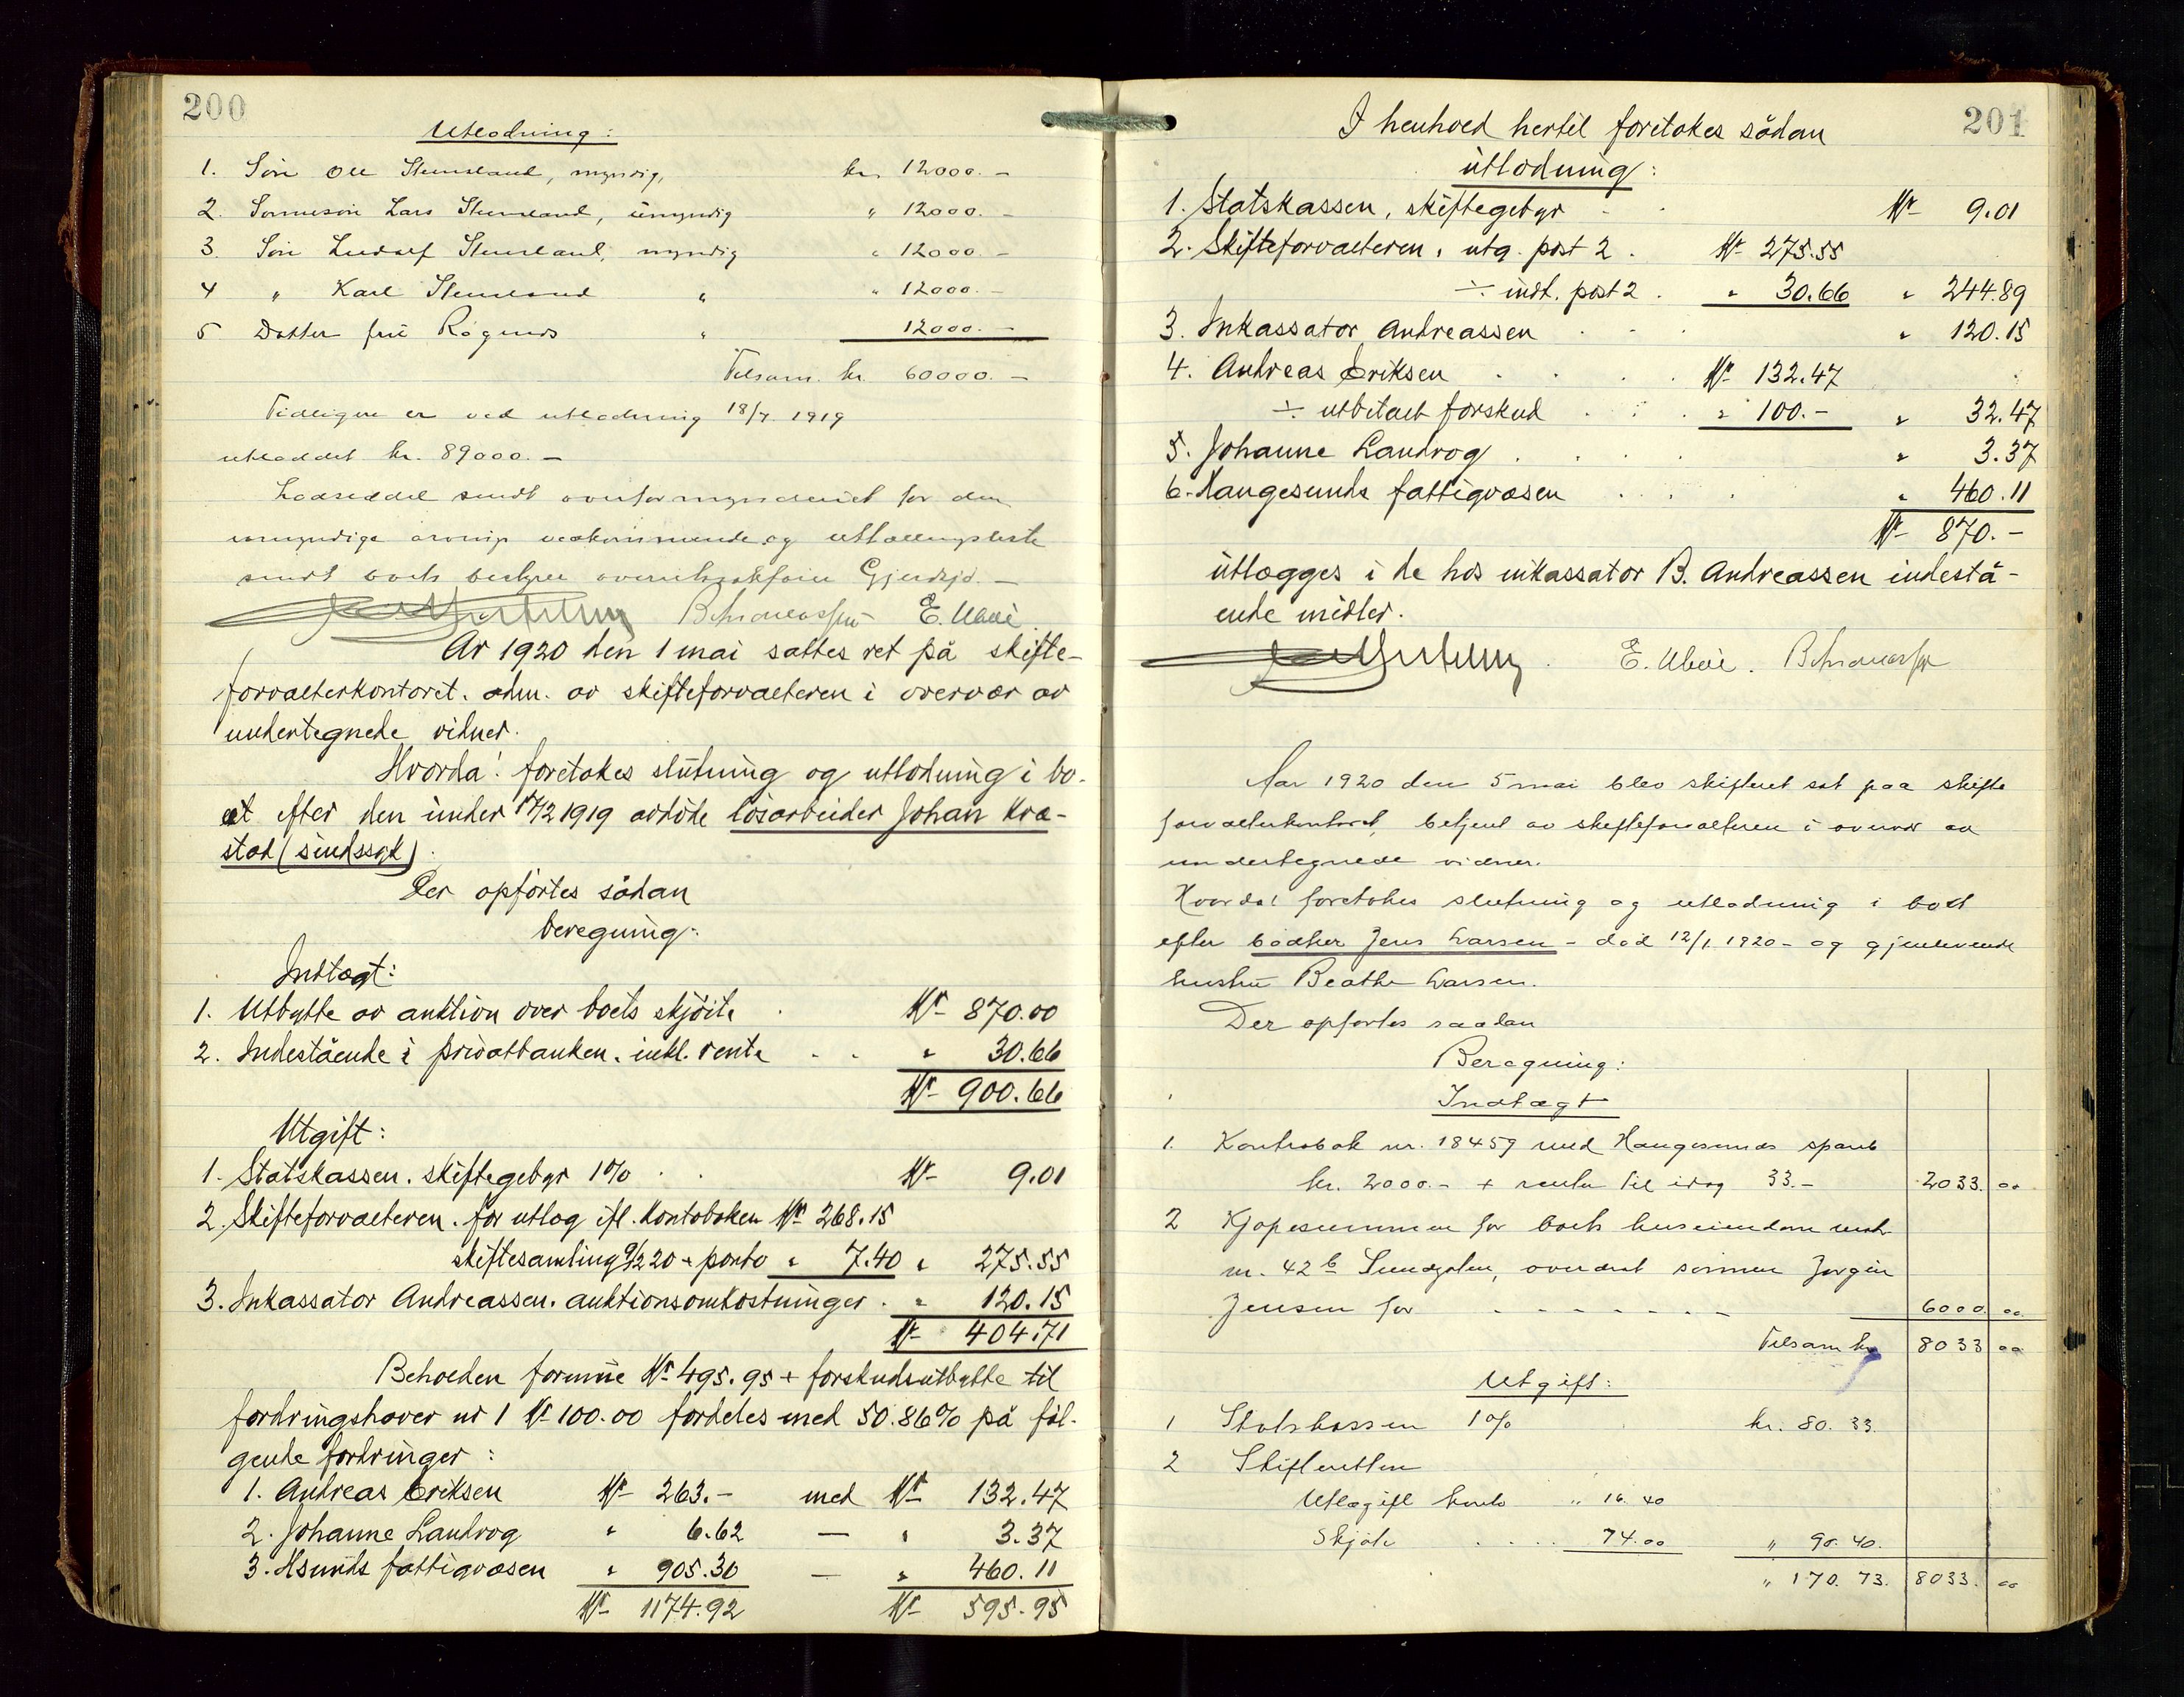 200
Utlodning:
1. Søn Ole Stensland, myndig, kr. 12000.–
2. Sønnesøn Lars Stensland, umyndig " 12000.–
3. Søn Ludolf Stensland, myndig " 12000.–
4 " Karl Stensland " " 12000.–
5 Datter fru Røgenes " 12000.–
Tilsam. kr. 60000.–
Tidligere er ved utlodning 18/7. 1919
utloddet kr. 89000.–
Lodseddel sendt overformynderiet for den
umyndige arving vedkommende og utlodningsliste
sendt boets bestyrer overretssakfører
B. Andreassen E. Ubøe
År 1920 den 1 mai sattes ret på skifte-
forvalterkontoret. adm. av skifteforvalteren i overvær av
undertegnede vidner.
Hvorda! foretokes slutning og utlodning i bo-
et efter den under 17/2 1919 avdöde lösarbeider Johan Kra-
stad (sindssyk).
Der opförtes sådan
beregning:
Indtægt:
1. Utbytte av auktion over boets skjöite . Kr 870.00
2. Indestående i privatbanken. inkl. rente . . " 30.66
Kr 900.66
Utgift:
1. Statskassen. skiftegebyr 1% . . Kr 9.01
2. Skifteforvalteren. for utlæg ifl. Kontoboken Kr 268.15
skiftesamling 9/2 20 + porto " 7.40 " 275.55
3. Inkassator Andreassen. auktionsomkostninger . " 120.15
Kr 404.71
Beholden formue Kr 495.95 + forskudsutbytte til
fordringshaver nr 1 Kr 100.00 fordeles med 50.86% på föl-
gende fordringer:
1. Andreas Eriksen Kr 263.– med Kr 132.47
2. Johanne Landrog " 6.62 — " 3.37
3. Hsunds fattigvæsen " 905.30 — " 460.11
Kr 1174.92 Kr 595.95
201
I henhold hertil foretokes sådan
utlodning:
1. Statskassen, skiftegebyr . . Kr 9.01
2. Skifteforvalteren, utg. post 2 . Kr 275.55
÷ indt. post 2 . " 30.66 " 244.89
3. Inkassator Andreassen . . . " 120.15
4. Andreas Eriksen . . . . Kr 132.47
÷ utbetalt forskud . . . " 100.– " 32.47
5. Johanne Landrog . . . . " 3.37
6. Haugesunds fattigvæsen . . . . " 460.11
Kr 870.–
utlægges i de hos inkassator B. Andreassen indestå-
ende midler.
E. Ubøe. B. Andreassen
Aar 1920 den 5 mai blev skifteret sat paa skifte
forvalterkontoret, betjent av skifteforvalteren i overvær av
undertegnede vidner.
Hvorda! foretokes slutning og utlodning i boet
efter bødker Jens Larsen – død 12/1. 1920 – og gjenlevende
hustru Beathe Larsen.
Der opførtes saadan
Beregning:
Indtægt
1. Kontrabok nr. 18459 med Haugesunds spareb
kr. 2000.– + renter til idag 33.– 2033. 00
2 Kjøpesummen for boets huseiendom matr
nr. 42 b Sundgaten, overdrat sønnen Jørgen
Jensen for - - - - - - - 6000. 00
Tilsam kr 8033 00
Utgift:
1 Statskassen 1% kr. 80. 33.
2 Skifteretten
Utlæg ifl konto " 16. 40
Skjøte . . . . 74.00 " 90. 40.
" 170. 73. 8033. 00